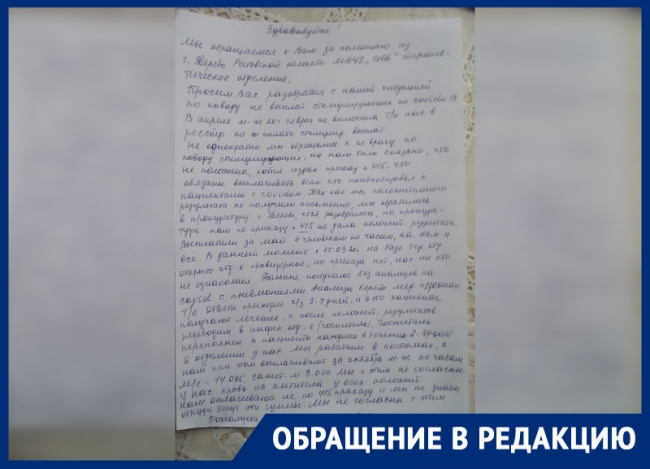 Здравствуйте!
Мы обращаемся к Вам за помощью из
г. Зверево Ростовской области МБУЗ „ЦГБ"
отделение.
Просим Вас разобраться с нашей ситуацией
по поводу не выплат стимулирующих по covid 19
В апреле м-це врач не включила нас в
реестр по оплате стимулир. выплат
не однократно мы обращались к врачу по
поводу стимулирующих, но нам было сказано, что
не положена, хотя издан приказ 415, что
обязаны выплачивать всем кто контактировал с
пациентами с covid. Так как мы положительного
результата не получили письменно, мы обратились
в прокуратуру г. Зверево, чтоб разобрались, но прокура-
тура нам по приказу 415 не дала положит. результата.
Выплатили за май по часам, на этом и
все. В данный момент на базе тер. отд.
открыто отд-е провизорное, но приказа нет, нас ни кто
не ознакомил. Больные поступают без анализов на
covid с пневмониями анализы берет мед. персонал,
ответы приходят ч/з дней, а эти пациенты
получают лечение, а после положит. результатов
переводим в отд-е (госпиталь), Госпиталь
переполнен и пациенты находятся в течении
в отделении у нас. Мы работаем в костюмах, а
нам при этом выплачивают за октябрь м-це по часам
м/с - санит. - Мы с этим не согласны
У нас кровь на антитела у всех положит.
нам оплачивают не по 415 приказу и мы не знаем
откуда берут эти суммы. Мы не согласны с этим
ОБРАЩЕНИЕ В РЕДАКЦИЮ